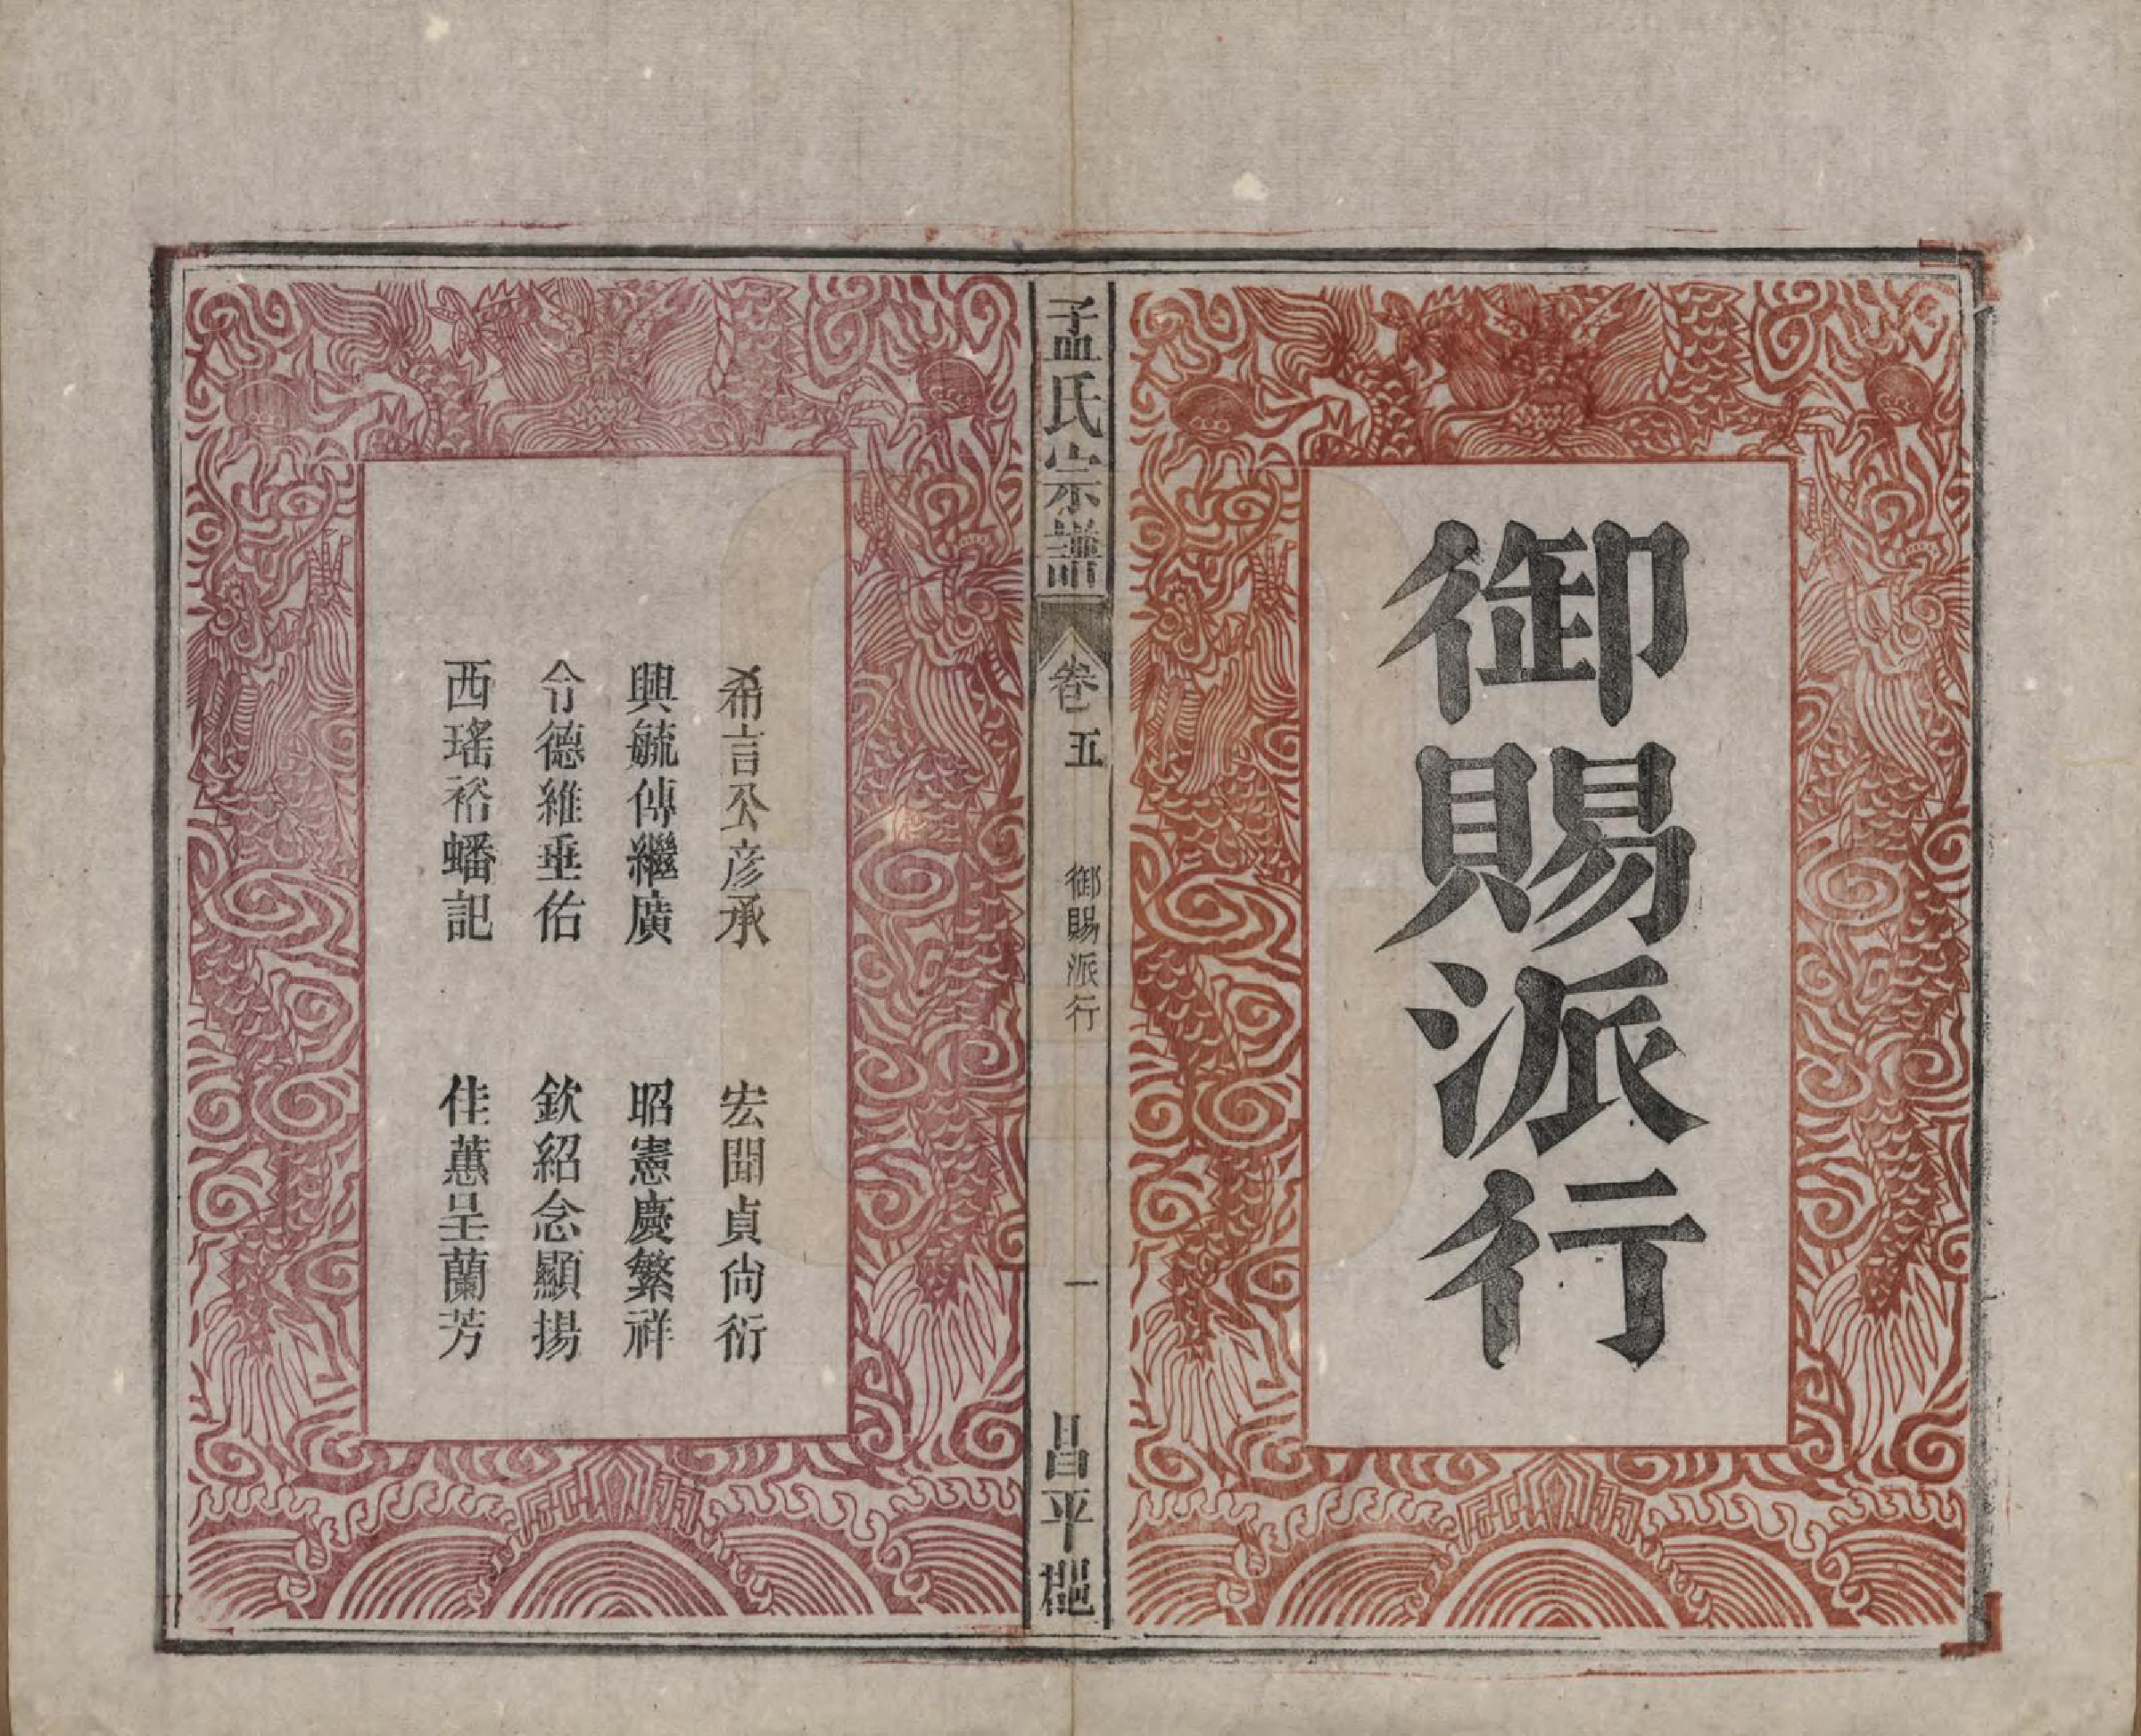 御賜派行
孟氏宗譜
卷五
御賜派行
一
昌平郡
希言公彦承 宏聞貞尙衍
興毓傳繼廣 昭憲慶繁祥
令德維垂佑 欽紹念顯揚
西瑤裕蟠記 佳蕙呈蘭芳